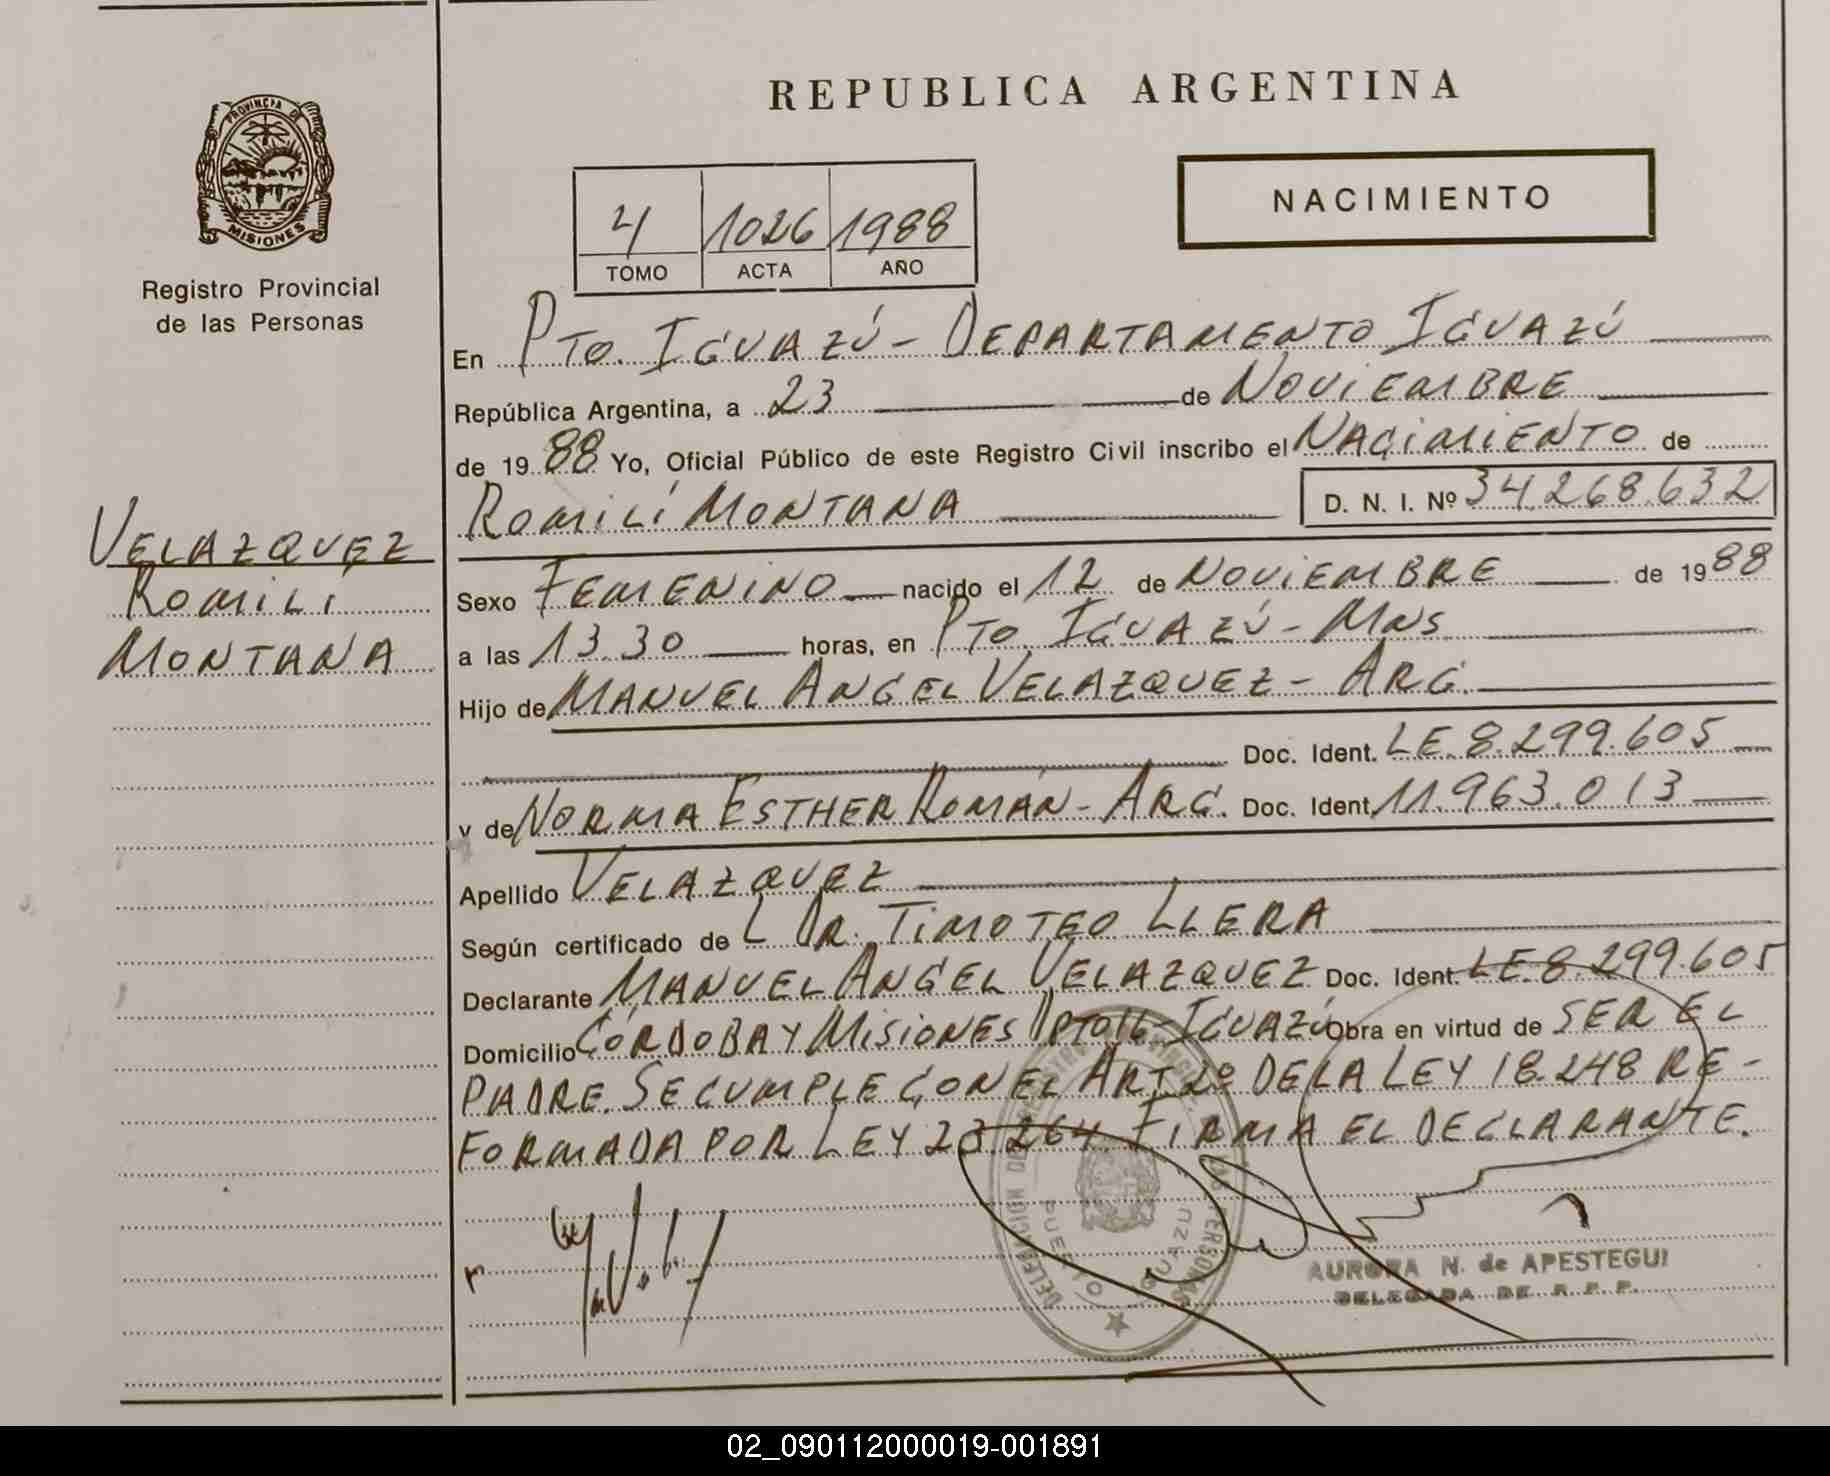 REPUBLICA ARGENTINA
PROVINCIA DE
MISIONES
Registro Provincial
de las Personas
NACIMIENTO
4 1026 1988
TOMO ACTA AÑO
En PTO. IGUAZÚ - DEPARTAMENTO IGUAZÚ
República Argentina, a 23 de NOVIEMBRE
de 19 88 Yo, Oficial Público de este Registro Civil inscribo el NACIMIENTO de
ROMILÍ MONTANA D. N. I. Nº 34.268.632
VELAZQUEZ
ROMILÍ
MONTANA
Sexo FEMENINO nacido el 12 de NOVIEMBRE de 19 88
a las 13.30 horas, en PTO. IGUAZÚ - MNS
Hijo de MANUEL ANGEL VELAZQUEZ - ARG.
Doc. Ident. LE.8.299.605
y de NORMA ESTHER ROMÁN - ARG. Doc. Ident. 11.963.013
Apellido VELAZQUEZ
Según certificado de L DR. TIMOTEO LLERA
Declarante MANUEL ANGEL VELAZQUEZ Doc. Ident. LE.8.299.605
Domicilio CÓRDOBA Y MISIONES IGUAZÚ Obra en virtud de SER EL
PADRE. SE CUMPLE CON EL ART 2º DE LA LEY 18.248 RE-
FORMADA POR LEY 23.264. FIRMA EL DECLARANTE.
AURORA N. de APESTEGUI
DELEGADA DE R. P. P.
02_090112000019-001891